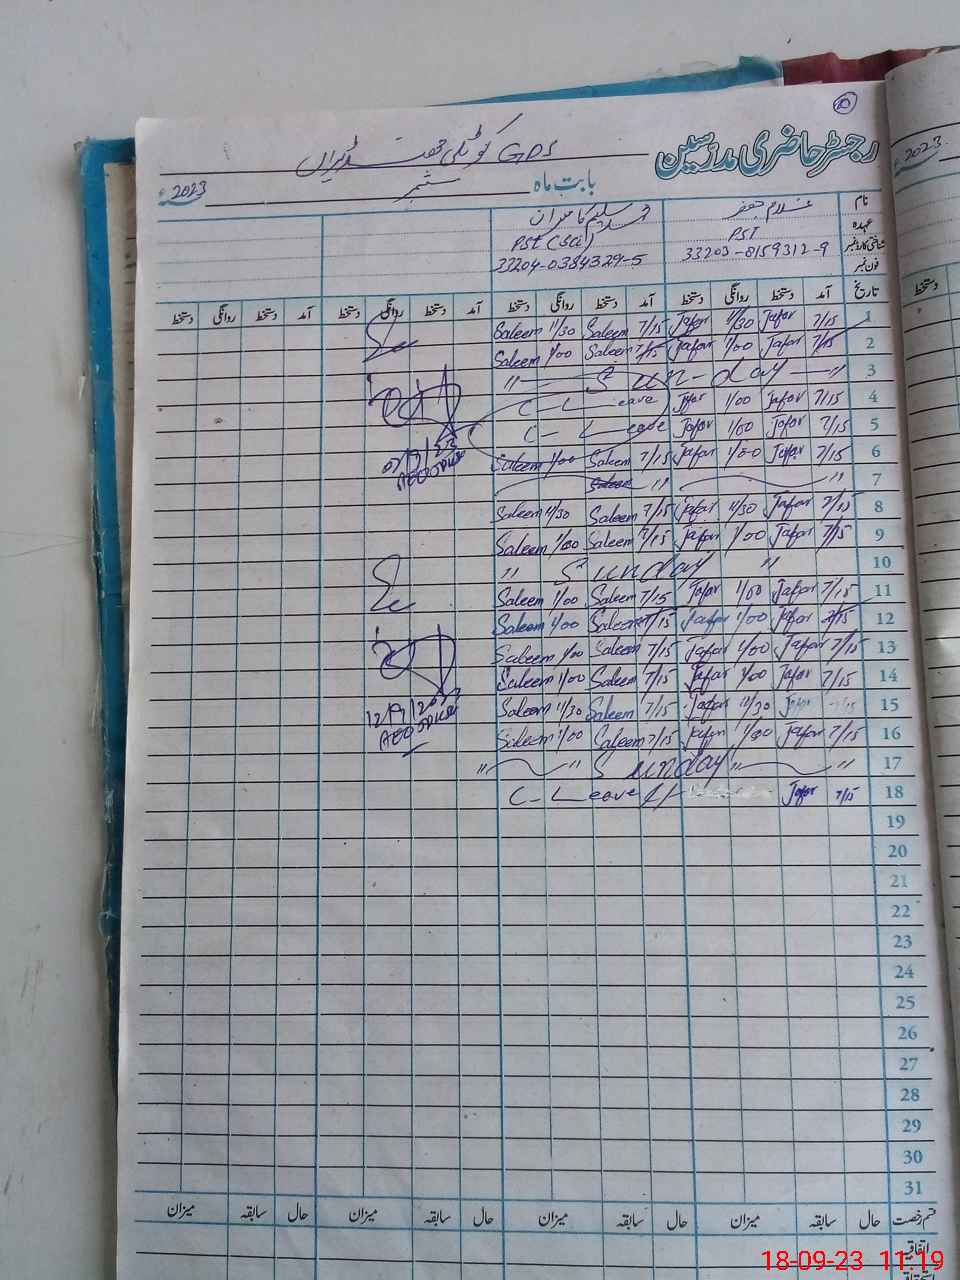 20
رجسٹر حاضری مدرسین
GPS کوٹلی
بابت ماہ ستمبر 2023ء
2023
نام غلام جعفر سلیم کامران
عہدہ PST PST (Sci)
شناختی کارڈ نمبر 33203-8159312-9 33204-0384329-5
فون نمبر
تاریخ آمد دستخط روانگی دستخط آمد دستخط روانگی دستخط آمد دستخط روانگی دستخط آمد دستخط روانگی دستخط
دستخط
Saleem 11/30 Saleem 7/15 Jafar 11/30 Jafar 7/15 1
Saleem 1/00 Saleem 7/15 Jafar 1/00 Jafar 7/15 2
" Sun-day " 3
C-Leave Jafar 1/00 Jafar 7/15 4
C-Leave Jafar 1/00 Jafar 7/15 5
Saleem 1/00 Saleem 7/15 Jafar 1/00 Jafar 7/15 6
Saleem " " 7
Saleem 11/30 Saleem 7/15 Jafar 11/30 Jafar 7/15 8
Saleem 1/00 Saleem 7/15 Jafar 1/00 Jafar 7/15 9
" Sunday " 10
Saleem 1/00 Saleem 7/15 Jafar 1/00 Jafar 7/15 11
Saleem 1/00 Saleem 7/15 Jafar 1/00 Jafar 7/15 12
Saleem 1/00 Saleem 7/15 Jafar 1/00 Jafar 7/15 13
Saleem 1/00 Saleem 7/15 Jafar 1/00 Jafar 7/15 14
12/9/203
AEO
Saleem 11/30 Saleem 7/15 Jafar 11/30 Jafar 7/15 15
Saleem 1/00 Saleem 7/15 Jafar 1/00 Jafar 7/15 16
" " Sunday " " 17
C-Leave Jafar 7/15 18
19
20
21
22
23
24
25
26
27
28
29
30
31
قسم رخصت حال سابقہ میزان حال سابقہ میزان حال سابقہ میزان حال سابقہ میزان
اتفاقیہ
18-09-23 11:19